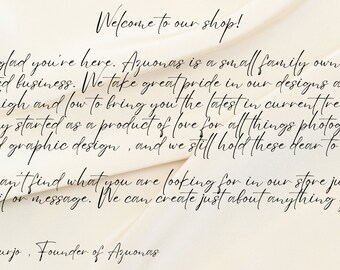 Welcome to our shop!
glad you're here. Azuonas is a small family own
ed business. We take great pride in our designs a
high and low to bring you the latest in current tre
y started as a product of love for all things photog
d graphic design , and we still hold these dear to
an't find what you are looking for in our store jus
il or message. We can create just about anything
urjo , Founder of Azuonas